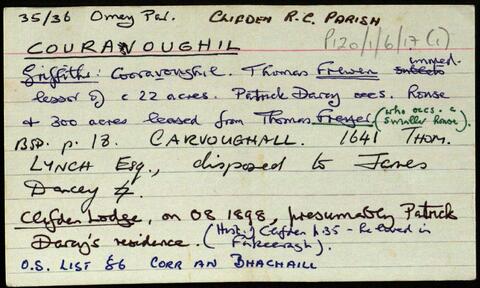 35/36 Omey Par. CLIFDEN R.C. PARISH
COURAVOUGHIL P120/1/6/17 (1)
Griffith: Cooravoughil. Thomas Frewen immed.
lessor of c 22 acres. Patrick Darcy occs. House
& 300 acres leased from Thomas Frewer (who occs. a smaller house).
BSD. p. 18. CARVOUGHALL. 1641 THOM.
LYNCH Esq., disposed to James
Darcey
Clifden Lodge, on OS 1898, presumably Patrick
Darcy's residence. (Hist. of Clifden p.35 - He lived in
O.S. LIST 86 CORR AN BHACHAILL